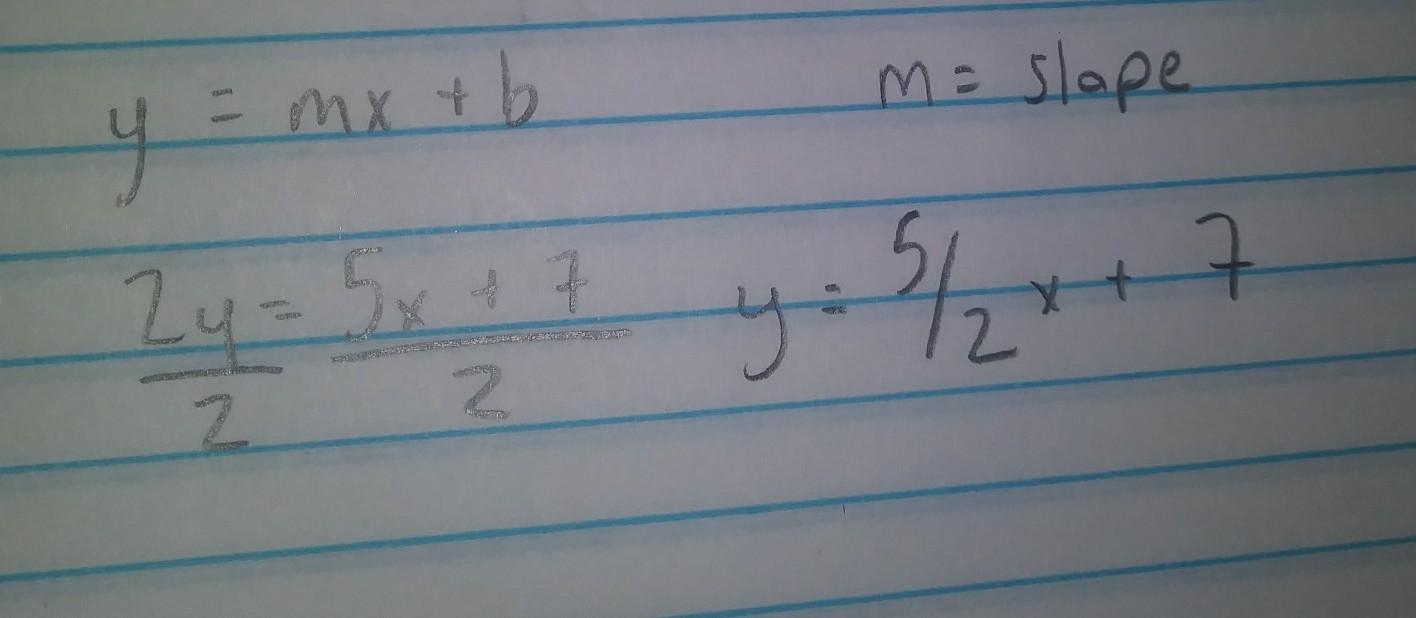 y = mx + b m = slope
2y/2 = 5x + 7/2 y = 5/2 x + 7